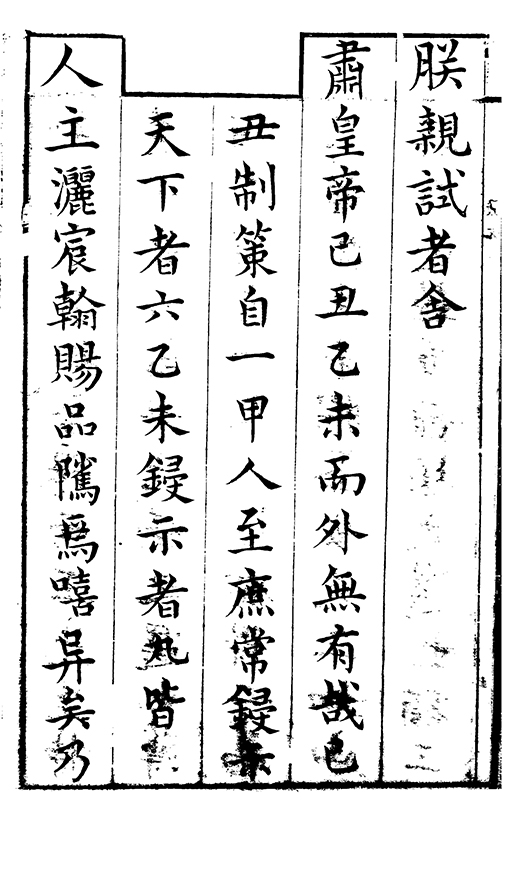 朕親試者舍
肅皇帝己丑乙未而外無有哉己
丑制策自一甲人至庶常錽示
天下者六乙未錽示者九皆
人主灑宸翰賜品隲爲嘻异矣乃